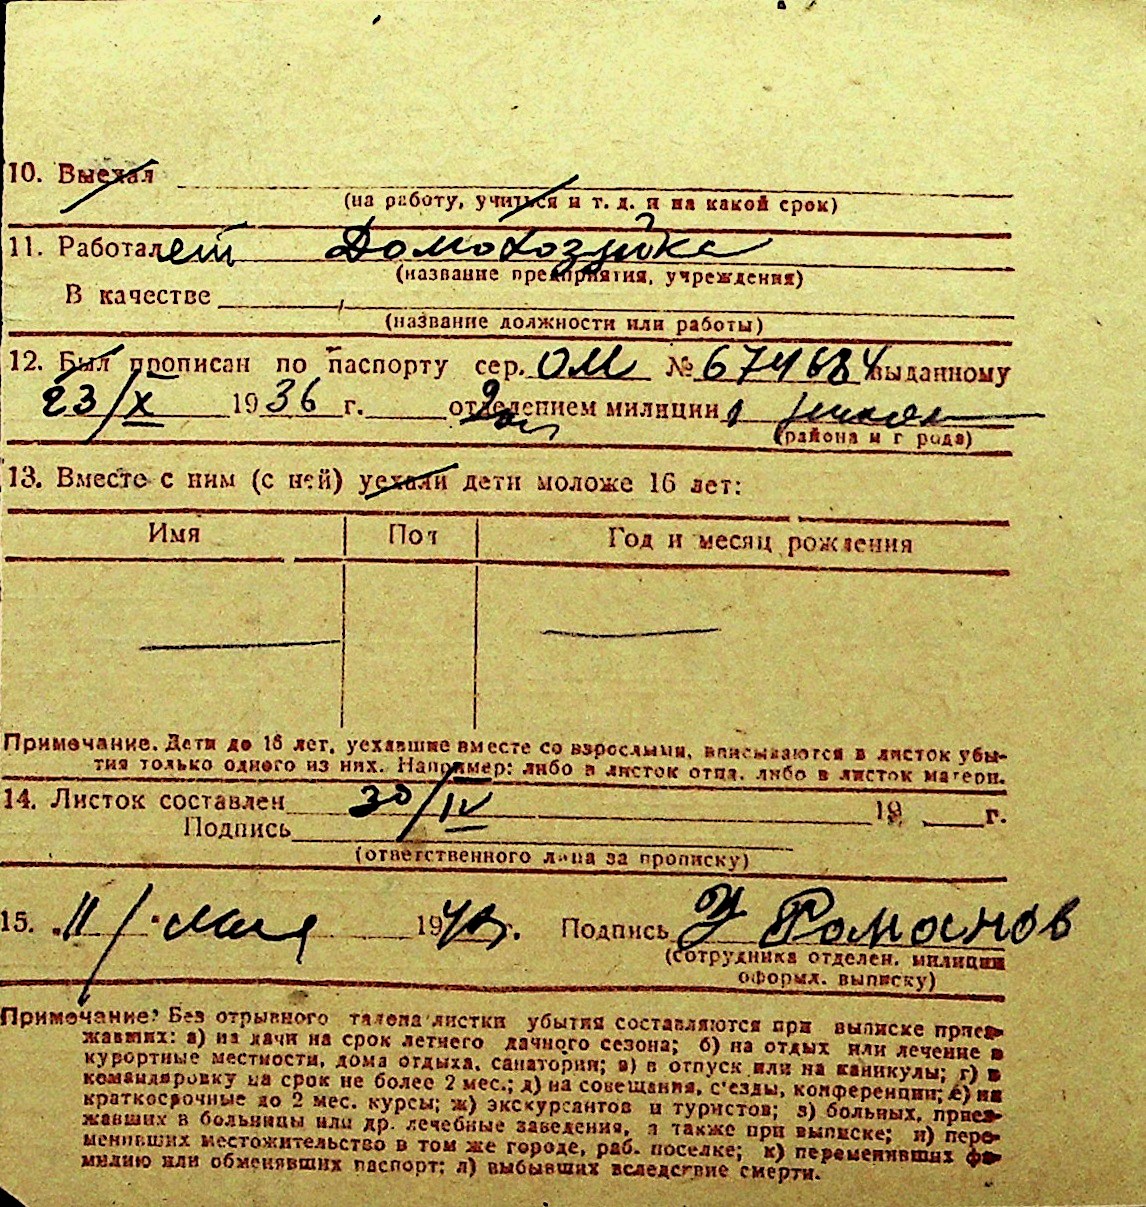 10. Выехал
(на работу, учиться и т. д. и на какой срок)
11. Работает Домохозяйка
(название предприятия, учреждения)
В качестве
(название должности или работы)
12. Был прописан по паспорту сер. ОМ № 674684 выданному
23/X 1936 г. 2ом отделением милиции г
(района и г рода)
13. Вместе с ним (с ней) уехали дети моложе 16 лет:
Имя Пол Год и месяц рождения
Примечание. Дети до 16 лет, уехавшие вместе со взрослыми, вписываются в листок убы-
тия только одного из них. Например: либо в листок отца, либо в листок матери.
14. Листок составлен 30/IV 19 г.
Подпись
(ответственного лица за прописку)
15. 11/мая 194 г. Подпись Романов
(сотрудника отделен. милиции
оформл. выписку)
Примечание: Без отрывного талона листки убытия составляются при выписке приез-
жавших: а) на дачи на срок летнего дачного сезона; б) на отдых или лечение в
курортные местности, дома отдыха, санатории; в) в отпуск или на каникулы; г) в
командировку на срок не более 2 мес.; д) на совещания, с'езды, конференции; е) на
краткосрочные до 2 мес. курсы; ж) экскурсантов и туристов; з) больных, приез-
жавших в больницы или др. лечебные заведения, а также при выписке; и) пере-
менивших местожительство в том же городе, раб. поселке; к) переменивших фа-
милию или обменявших паспорт; л) выбывших вследствие смерти.